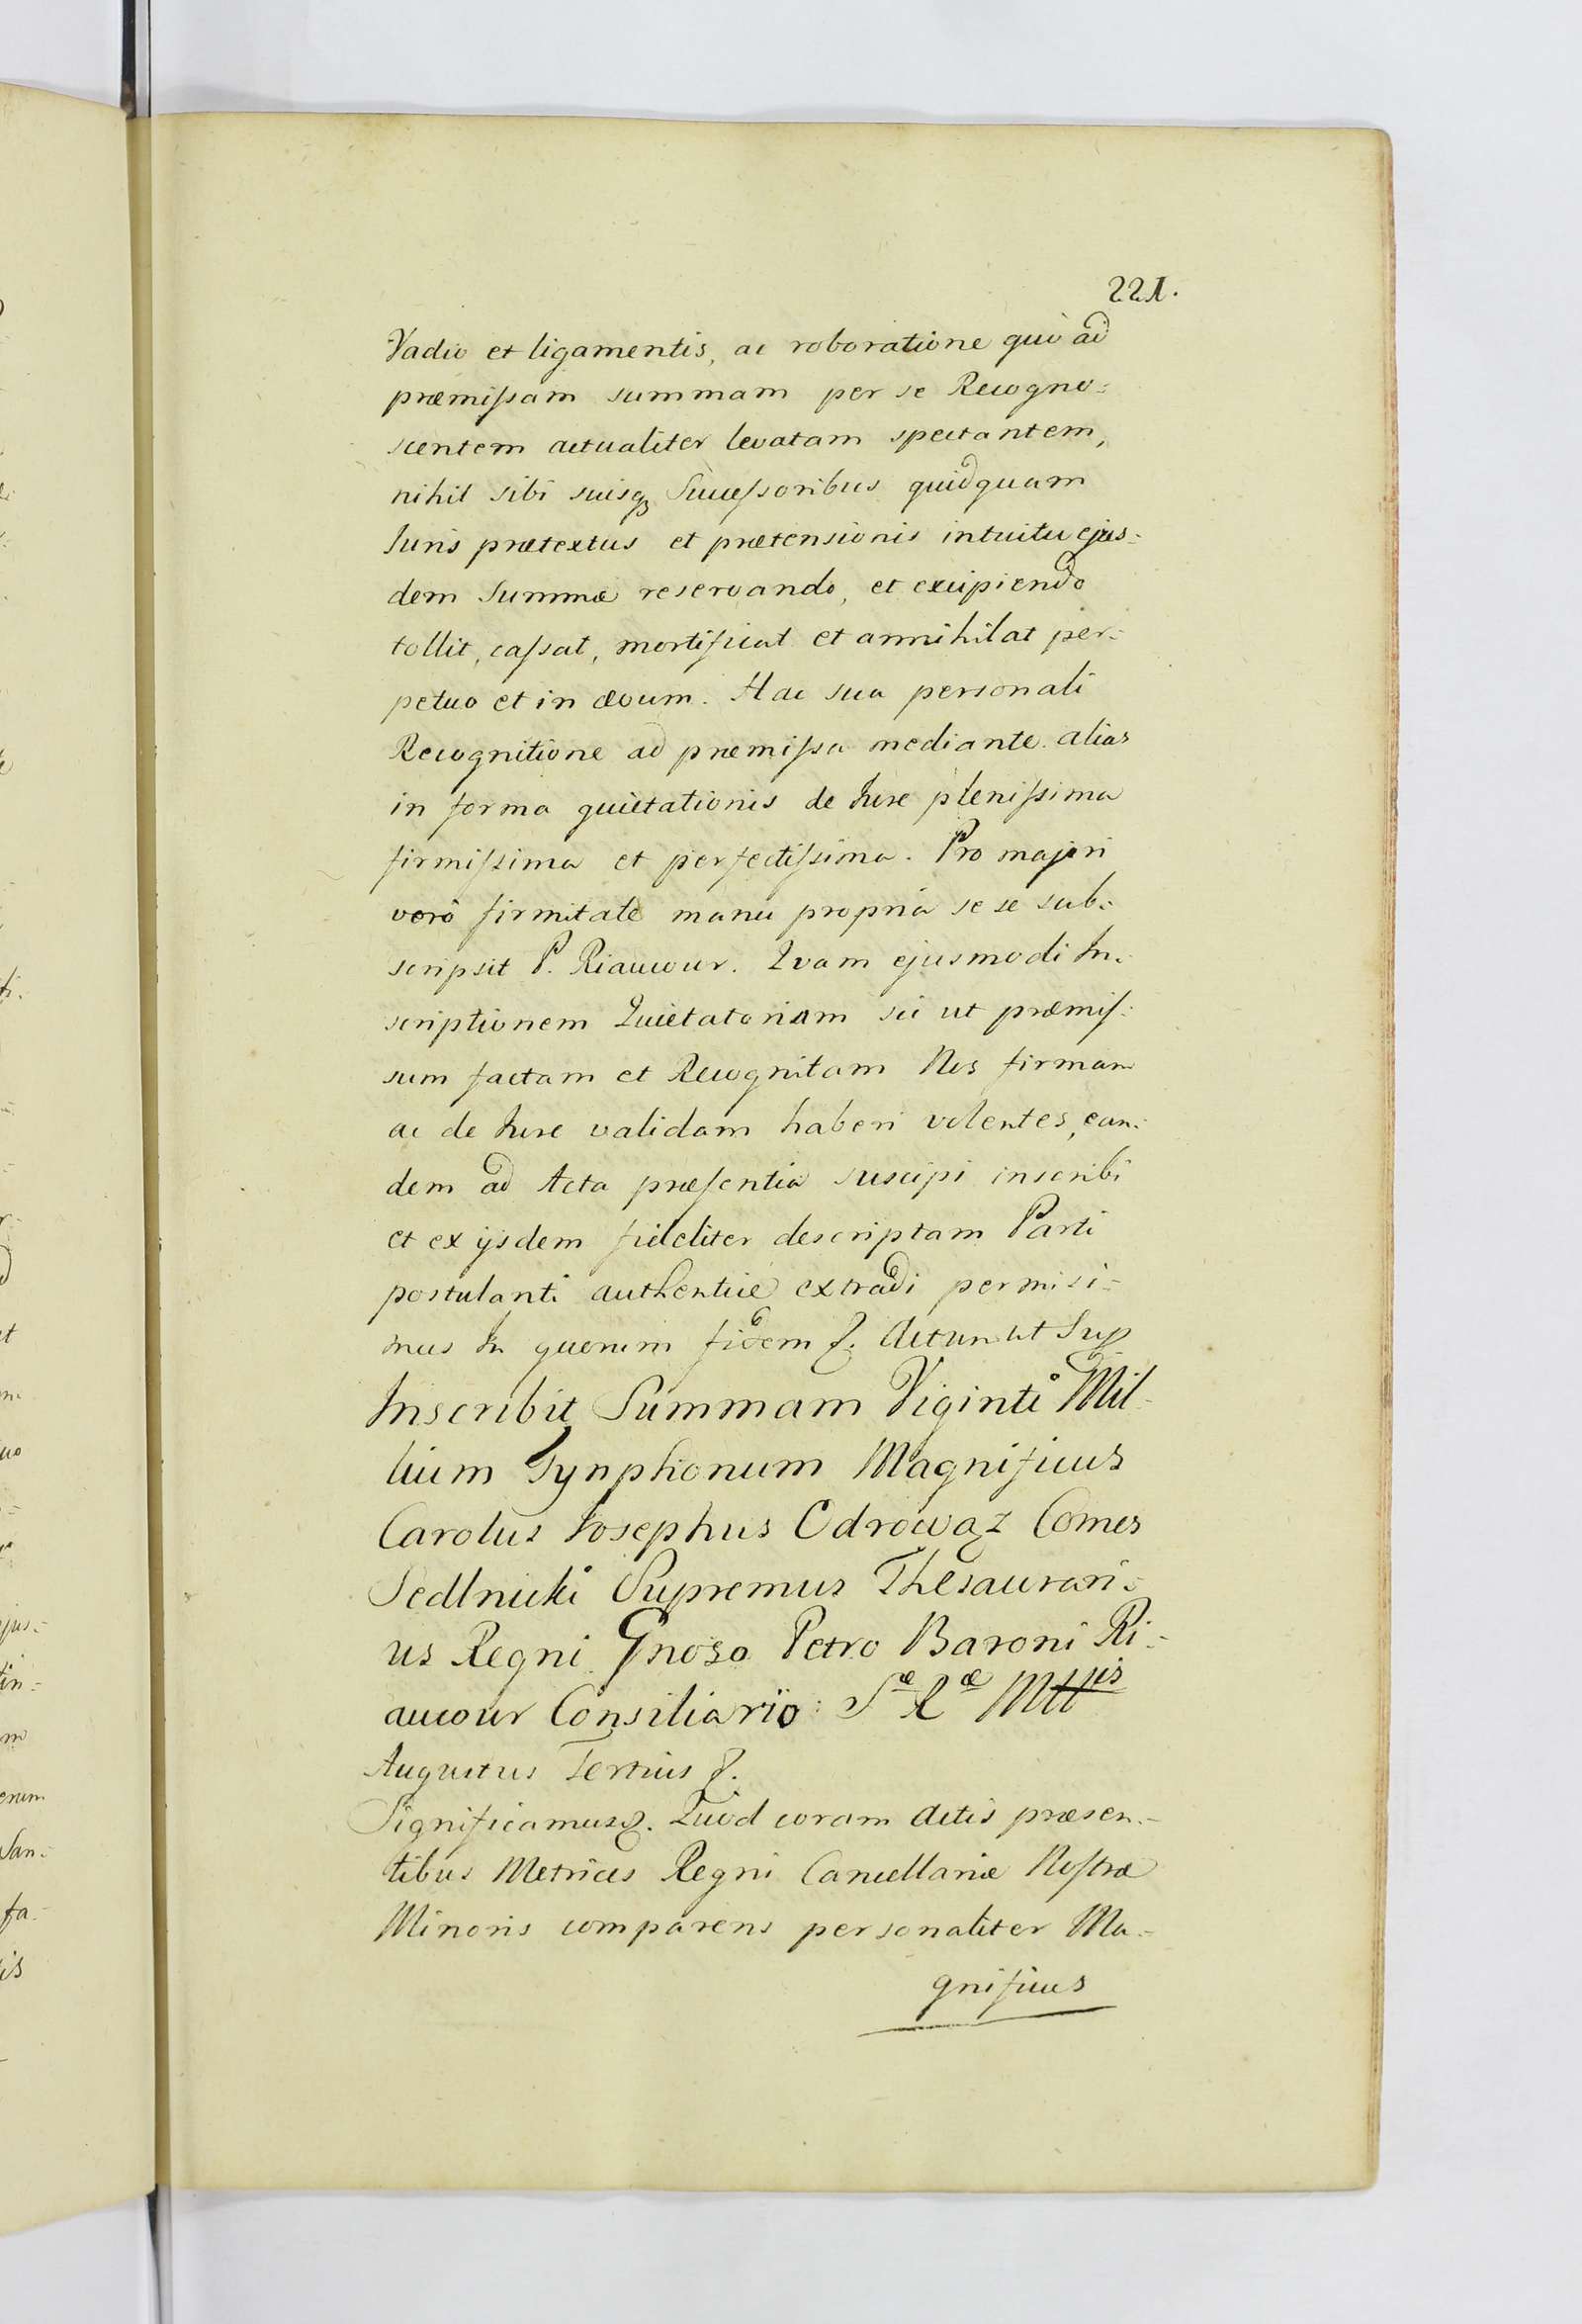 221.
Vadio et ligamentis, ac roboratione quò ad
præmissam summam per se Recogno-
scentem actualiter levatam spectantem,
nihil sibi suisq Successoribus quidquam
Iuris prætextus et prætensionis intuitu ejus-
dem Summæ reservando, et excipiendo
tollit, cassat, mortificat et annihilat per-
petuo et in ævum. Hac sua personali
Recognitione ad præmissa mediante. alias
in forma quietationis de Iure plenissima
firmissima et perfectissima. Pro majori
verò firmitate manu propria se se sub-
scripsit P. Riaucour. Quam ejusmodi In-
scriptionem Quietatoriam sic ut præmis-
sum factam et Recognitam Nos firmam
ac de Iure validam haberi volentes, ean-
dem ad Acta præsentia suscipi inscribi
et ex ijsdem fideliter descriptam Parti
postulanti authenticè extradi permisi-
mus In quorum fidem &. Actum ut Sup
Inscribit Summam Viginti Mil-
lium Tynphonum Magnificus
Carolus Iosephus Odrowąz Comes
Sedlnicki Supremus Thesaurari-
us Regni Gnoso Petro Baroni Ri-
aucour Consiliario: Sæ Ræ Mttis
Augustus Tertius &.
Significamus &. Quod coram Actis præsen-
tibus Metrices Regni Cancellariæ Nostræ
Minoris comparens personaliter Ma-
gnificus